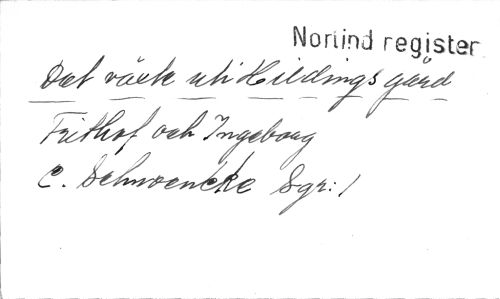 Norlind register
Det växte uti Hildings gård
Frithof och Ingeborg
C. Schwencke Sgr: 1